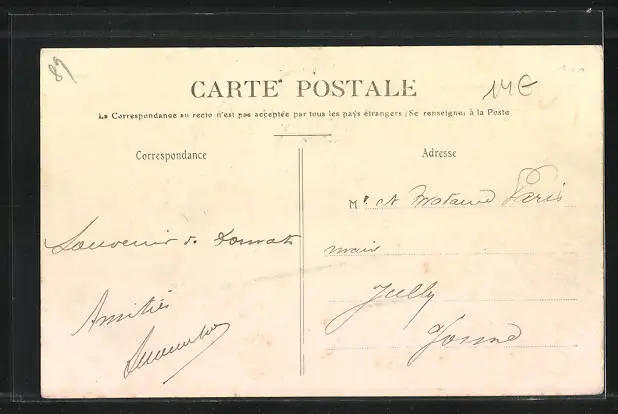 89
CARTE POSTALE
14€
La Correspondance au recto n'est pas acceptée par tous les pays étrangers (Se renseigner à la Poste
Correspondance
Adresse
Mr. et Madame Paris
Souvenir de
maire
Jully
Amitiés
Yonne